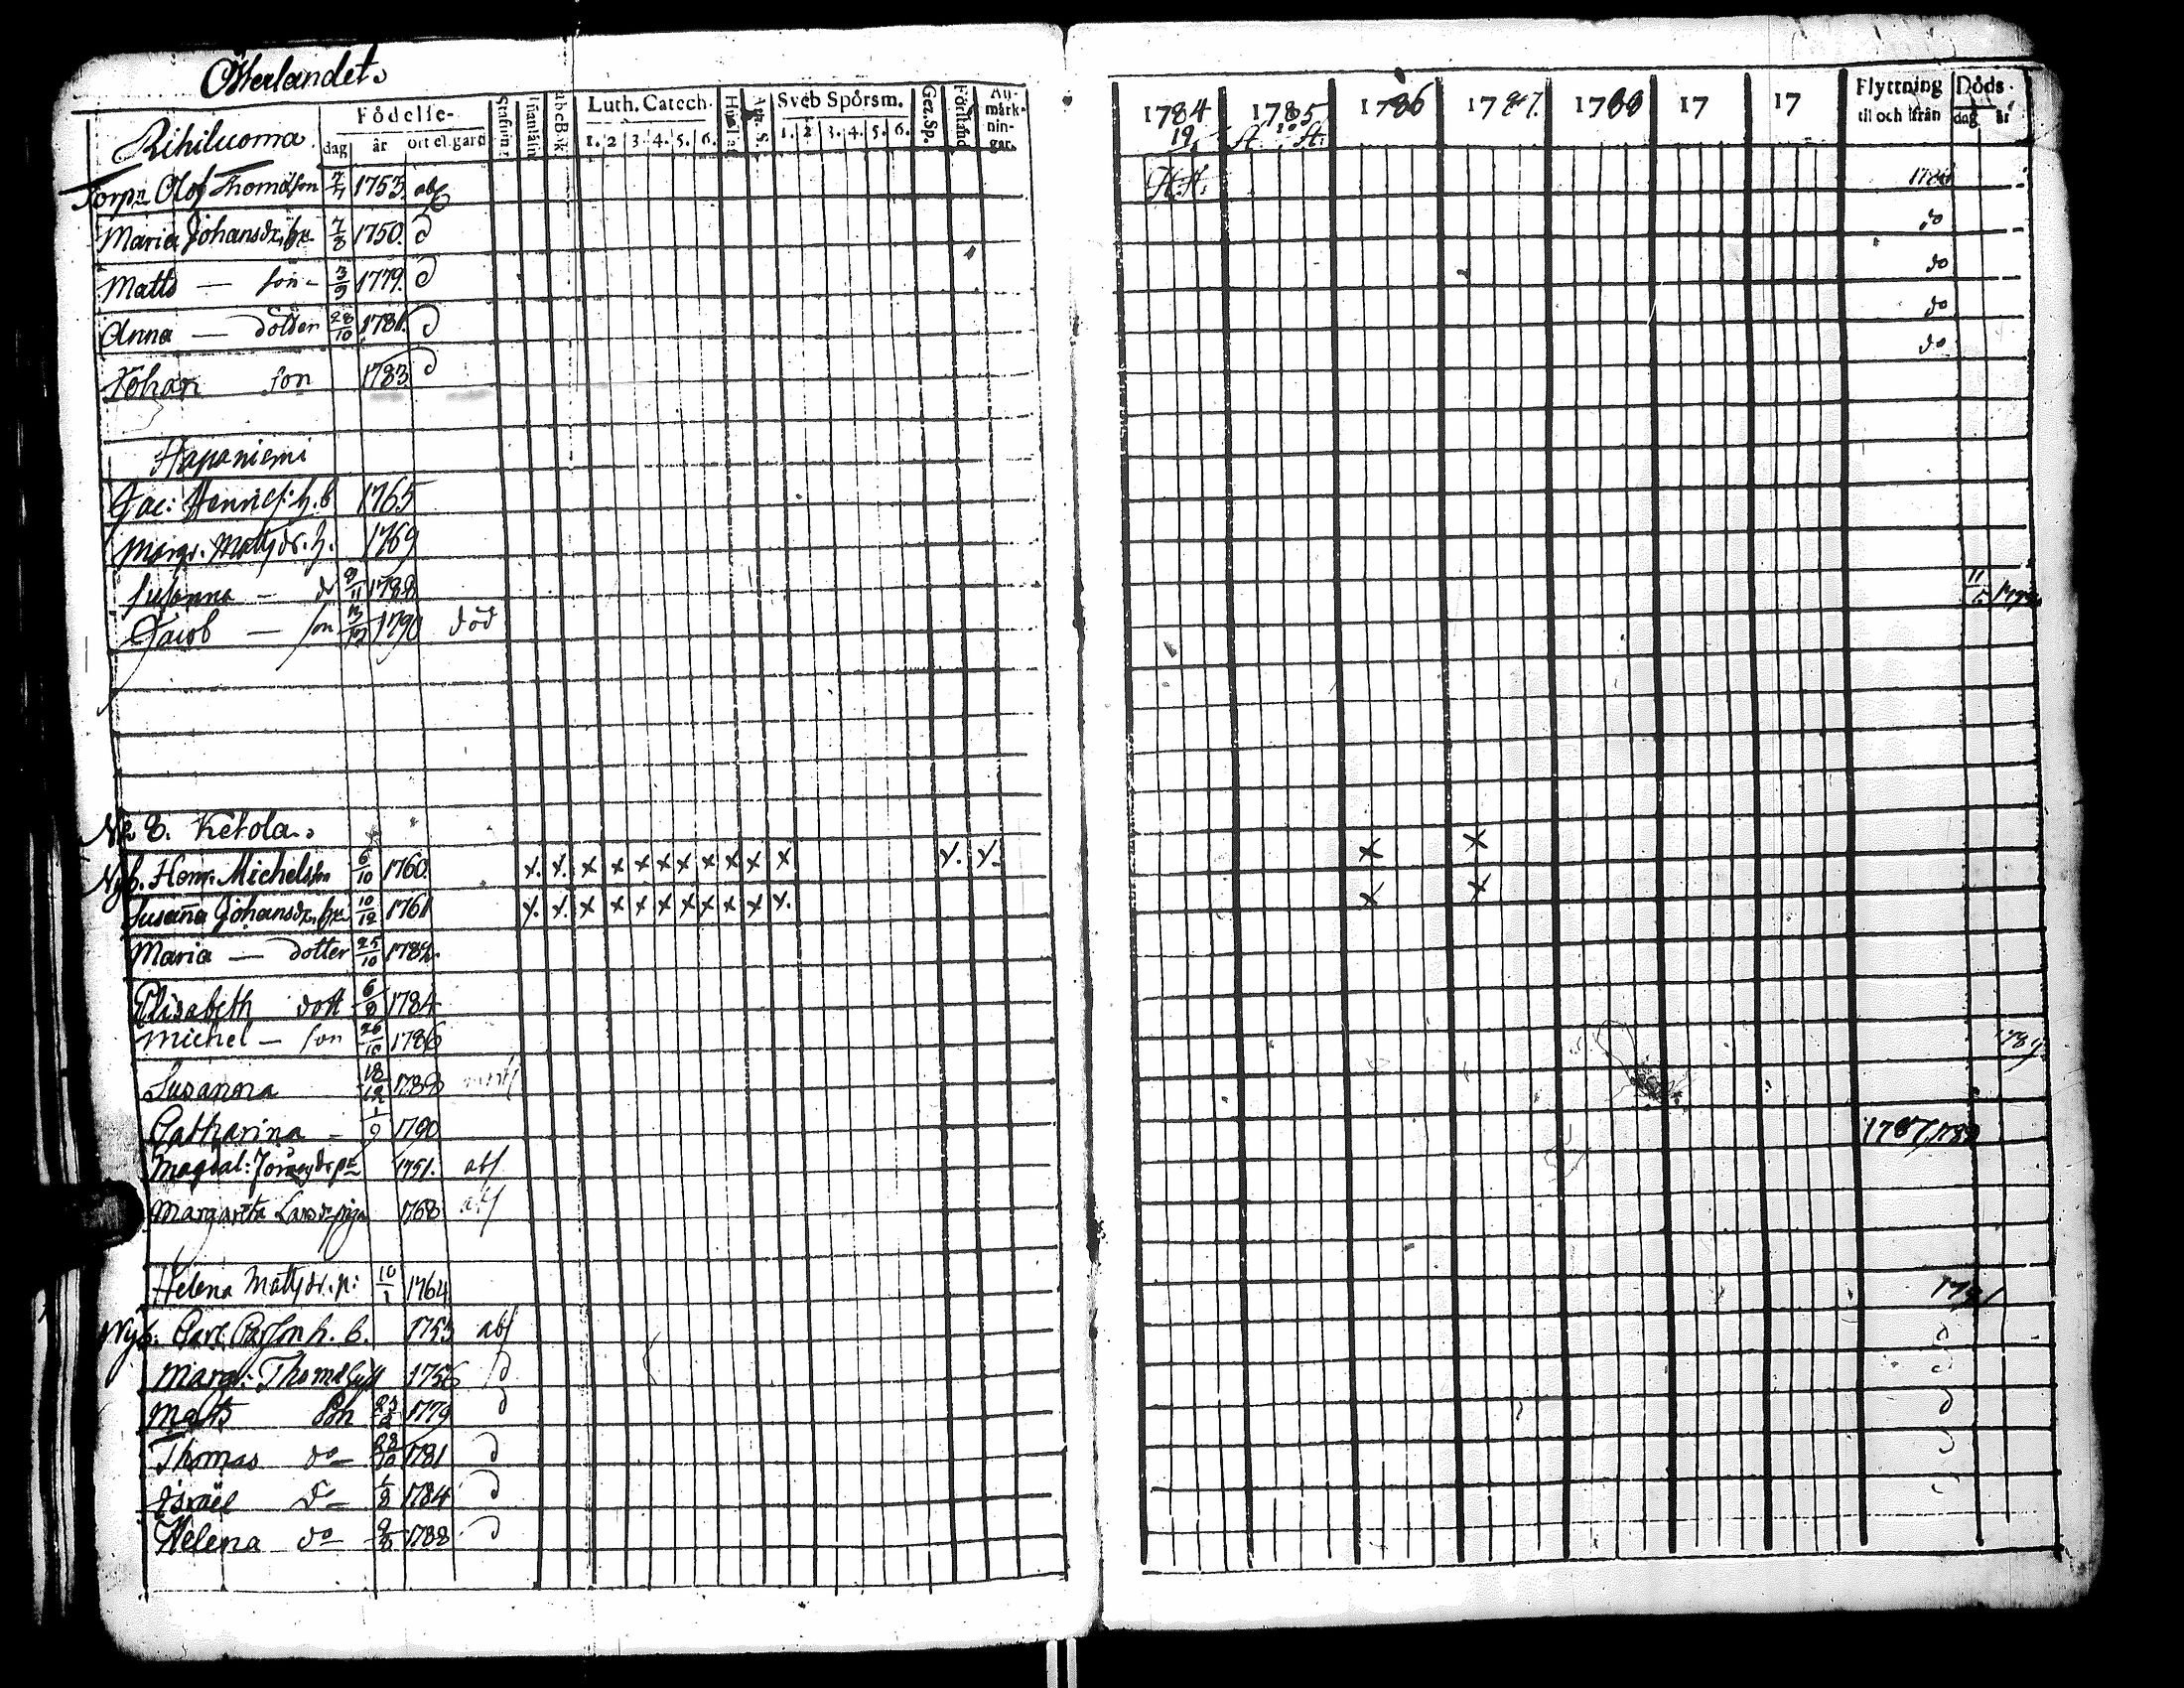 Österlandet.
Rihiluoma.
Födelse-
dag år ort el. gård
Stafning
Innanläsn.
Abc Bok
Luth. Catech.
1. 2 3. 4. 5. 6.
Hust.
Ath. S.
Sveb Spörsm.
1. 2 3. 4. 5. 6.
Gez. Sp.
Förstånd
An-
märk-
nin-
gar.
1784 1785 1786 1787. 1788 17 17
19
Flyttning
til och ifrån
Döds-
dag år
Torpn Olof Thomasson 7/7 1753. abs H.H. 1786
Maria Johansdr. hu 7/8 1750. d do
Matts — son - 3/9 1779. d do
Anna — dotter 28/10 1781. d do
Johan son 1783 d do
Hapaniemi
Jac: Henrics: h.b 1765
Margr. Mattsdr. h. 1769
Susanna — dr 9/11 1788
Jacob — son 13/12 1790 död
No 8. Ketola.
Nyb. Henr. Michelsson 6/10 1760. x. x. x x x x x x x x x x. x. x x
Susaña Johansdr. hu 10/12 1761 x. x. x x x x x x x x x. x x
Maria — dotter 25/10 1782.
Elisabeth dott 6/9 1784
Michel — son 26/10 1786 1789
Susanna 18/12 1788
Catharina — 1/9 1790
Magdal: 1751. abs 1787, 1788
Margareta Larsdr piga 1768 abs
Helena Mattsdr. p: 10/1 1764
Nyb. Carl Carlson h. b. 1753 abs 1791
Marg: Thomæ 1756 d d
Matts son 23/2 1779 d d
Thomas do — 28/10 1781 d d
Israël do — 1/8 1784 d
Helena do — 9/8 1788 d